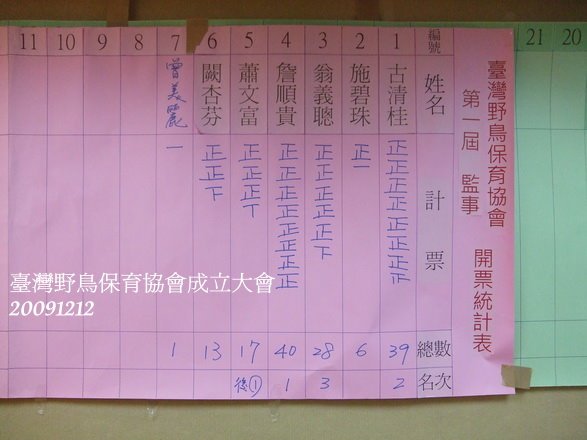 21
20
臺灣野鳥保育協會
第一屆 監事 開票統計表
編號 姓名 計票 總數 名次
1 古清桂 正正正正正正正 39 2
2 施碧珠 正一 6
3 翁義聰 正正正正正下 28 3
4 詹順貴 正正正正正正正正 40 1
5 蕭文富 正正正丅 17 後①
6 闕杏芬 正正下 13
7 曾美麗 一 1
8
9
10
11
臺灣野鳥保育協會成立大會
20091212